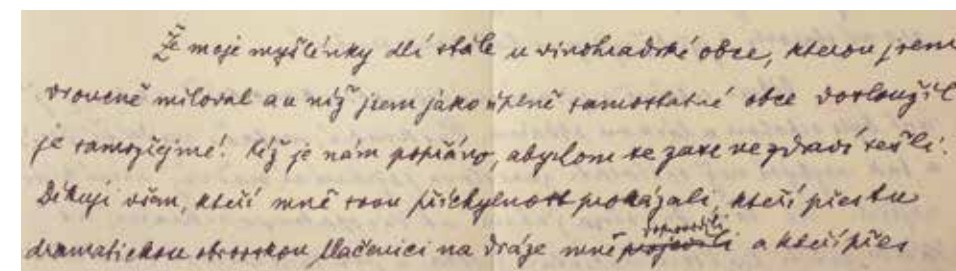 Že moje myšlénky dlí stále u vinohradské obce, kterou jsem
vroucně miloval a u níž jsem jako úplně samostatné obce dosloužil
je samozřejmé. Kéž je nám popřáno, abychom se zase ve zdraví sešli.
Děkuji všem, kteří mně svou příchylnost prokázali, kteří přes tu
dramatickou obrovskou tlačenici na dráze mně projevili doprovodili a kteří přes